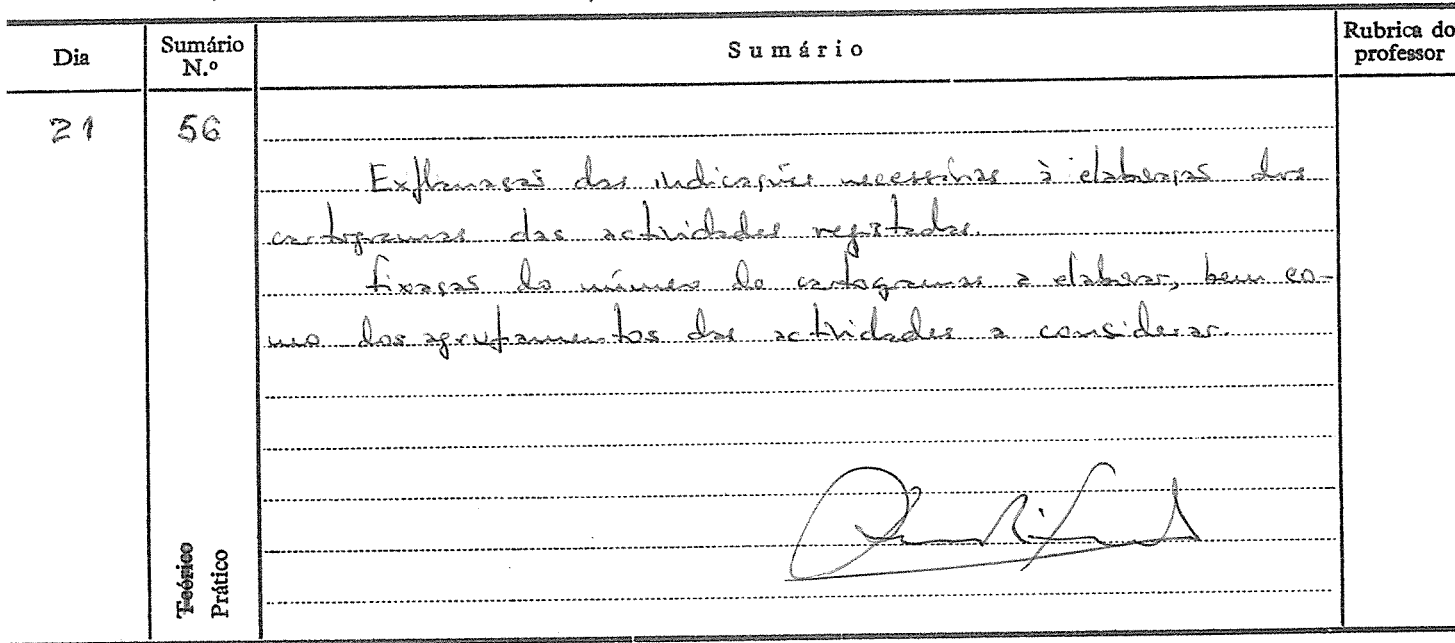 Dia Sumário N.º Sumário Rubrica do professor
21 56
Explanação das indicações necessárias à elaboração dos
cartogramas das actividades registadas.
Fixação do número de cartogramas a elaborar, bem co-
mo dos agrupamentos das actividades a considerar.
Teórico
Prático